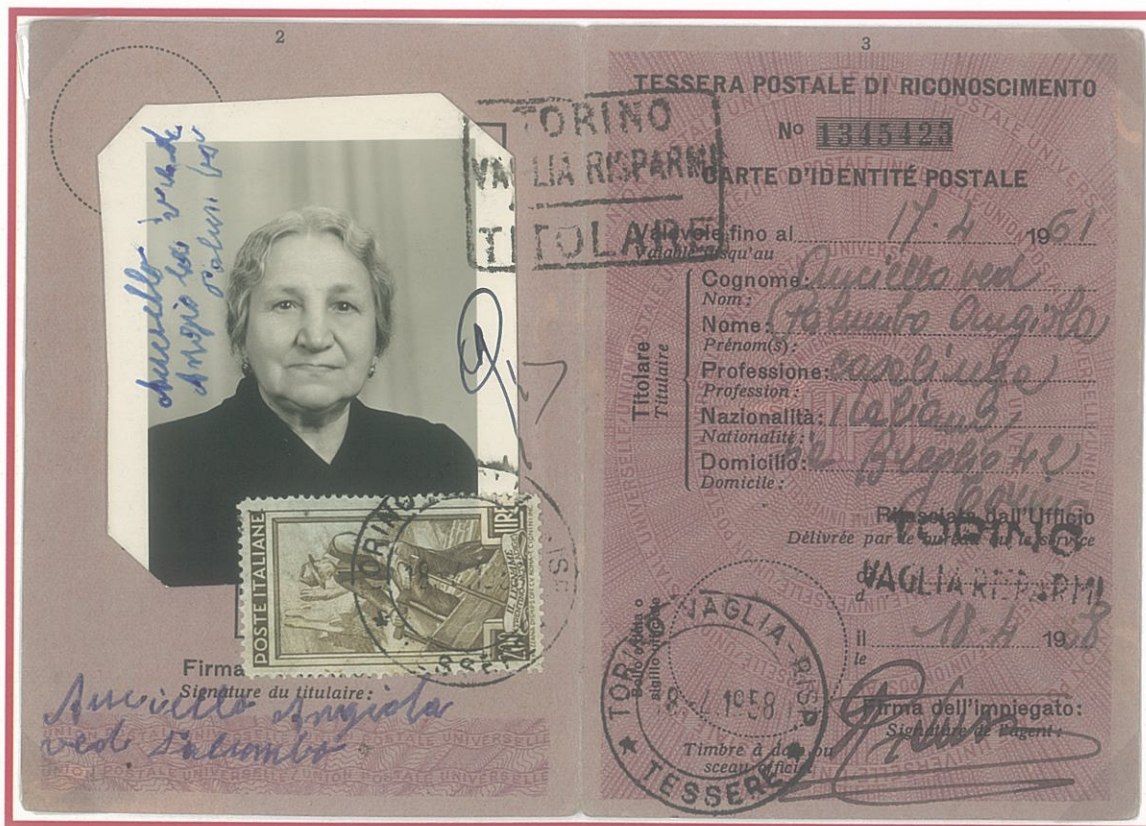 2
Anciello
Angiola vedova
Palumbo
TORINO
VAGLIA RISPARMI
TITOLARE
POSTE ITALIANE
LIRE
TORINO
Firma
Signature du titulaire:
Anciello Angiola
ved Palumbo
UNION POSTALE UNIVERSELLE
3
TESSERA POSTALE DI RICONOSCIMENTO
No 1345423
CARTE D'IDENTITÉ POSTALE
Valevole fino al 17-4 1961
Valable jusqu'au
Titolare
Titulaire
Cognome: Anciello ved
Nom:
Nome: Palumbo Angiola
Prénom(s):
Professione: casalinga
Profession:
Nazionalità: Italiana
Nationalité:
Domicilio: Breglio 42
Domicile: Torino
Rilasciata dall'Ufficio
Délivrée par le bureau ou le service
TORINO
VAGLIA RISPARMI
il 18-4 1958
le
Bollo a data o
sigillo ufficiale
TORINO VAGLIA-RISP
1958
TESSERE
Timbre à date ou
sceau officiel
Firma dell'impiegato:
Signature de l'agent: